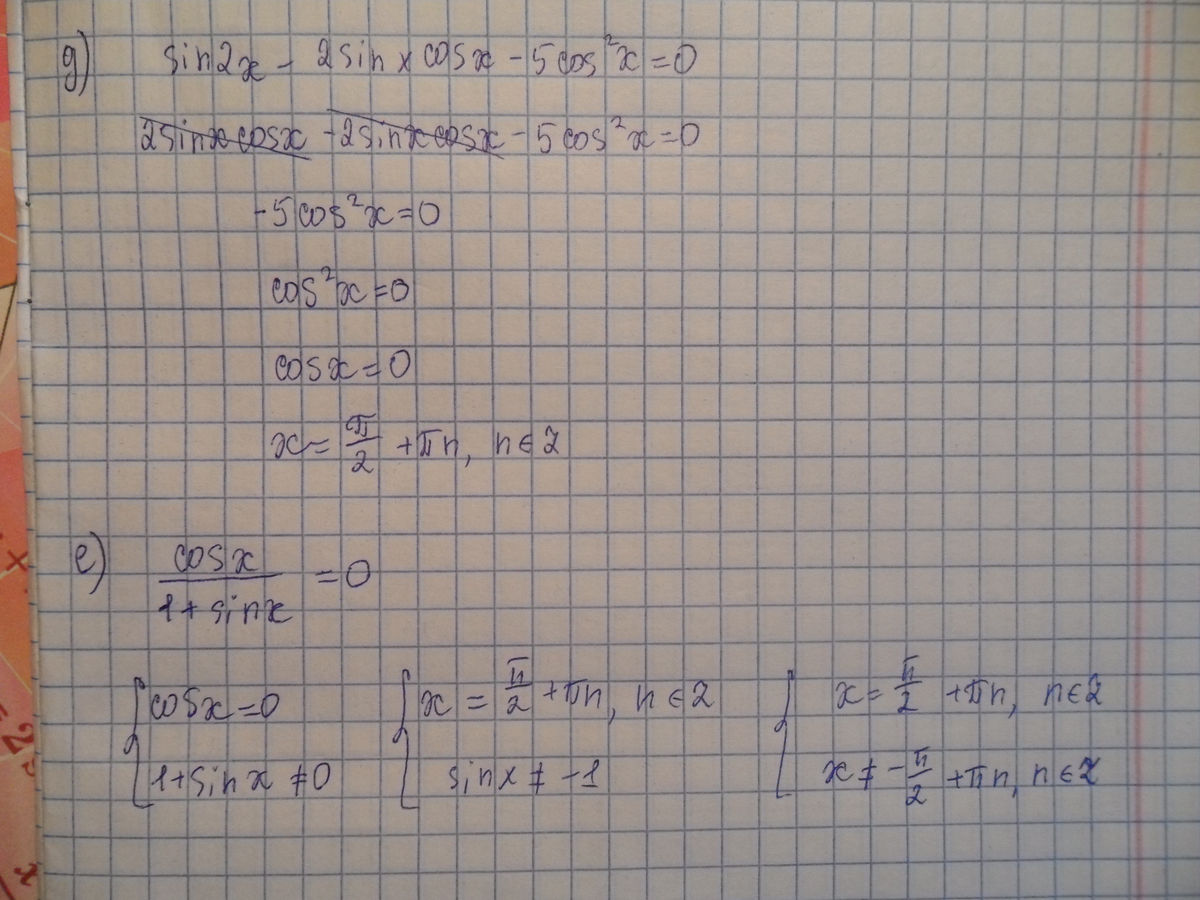 д) sin2x - 2sinx cosx - 5cos²x = 0
2sinxcosx - 2sinxcosx - 5cos²x = 0
-5cos²x = 0
cos²x = 0
cosx = 0
x = π/2 + πn, n∈Z
e) cosx/(1+sinx) = 0
{ cosx = 0 { x = π/2 + πn, n∈Z { x = π/2 + πn, n∈Z
1+sinx ≠ 0 sinx ≠ -1 x ≠ -π/2 + πn, n∈Z